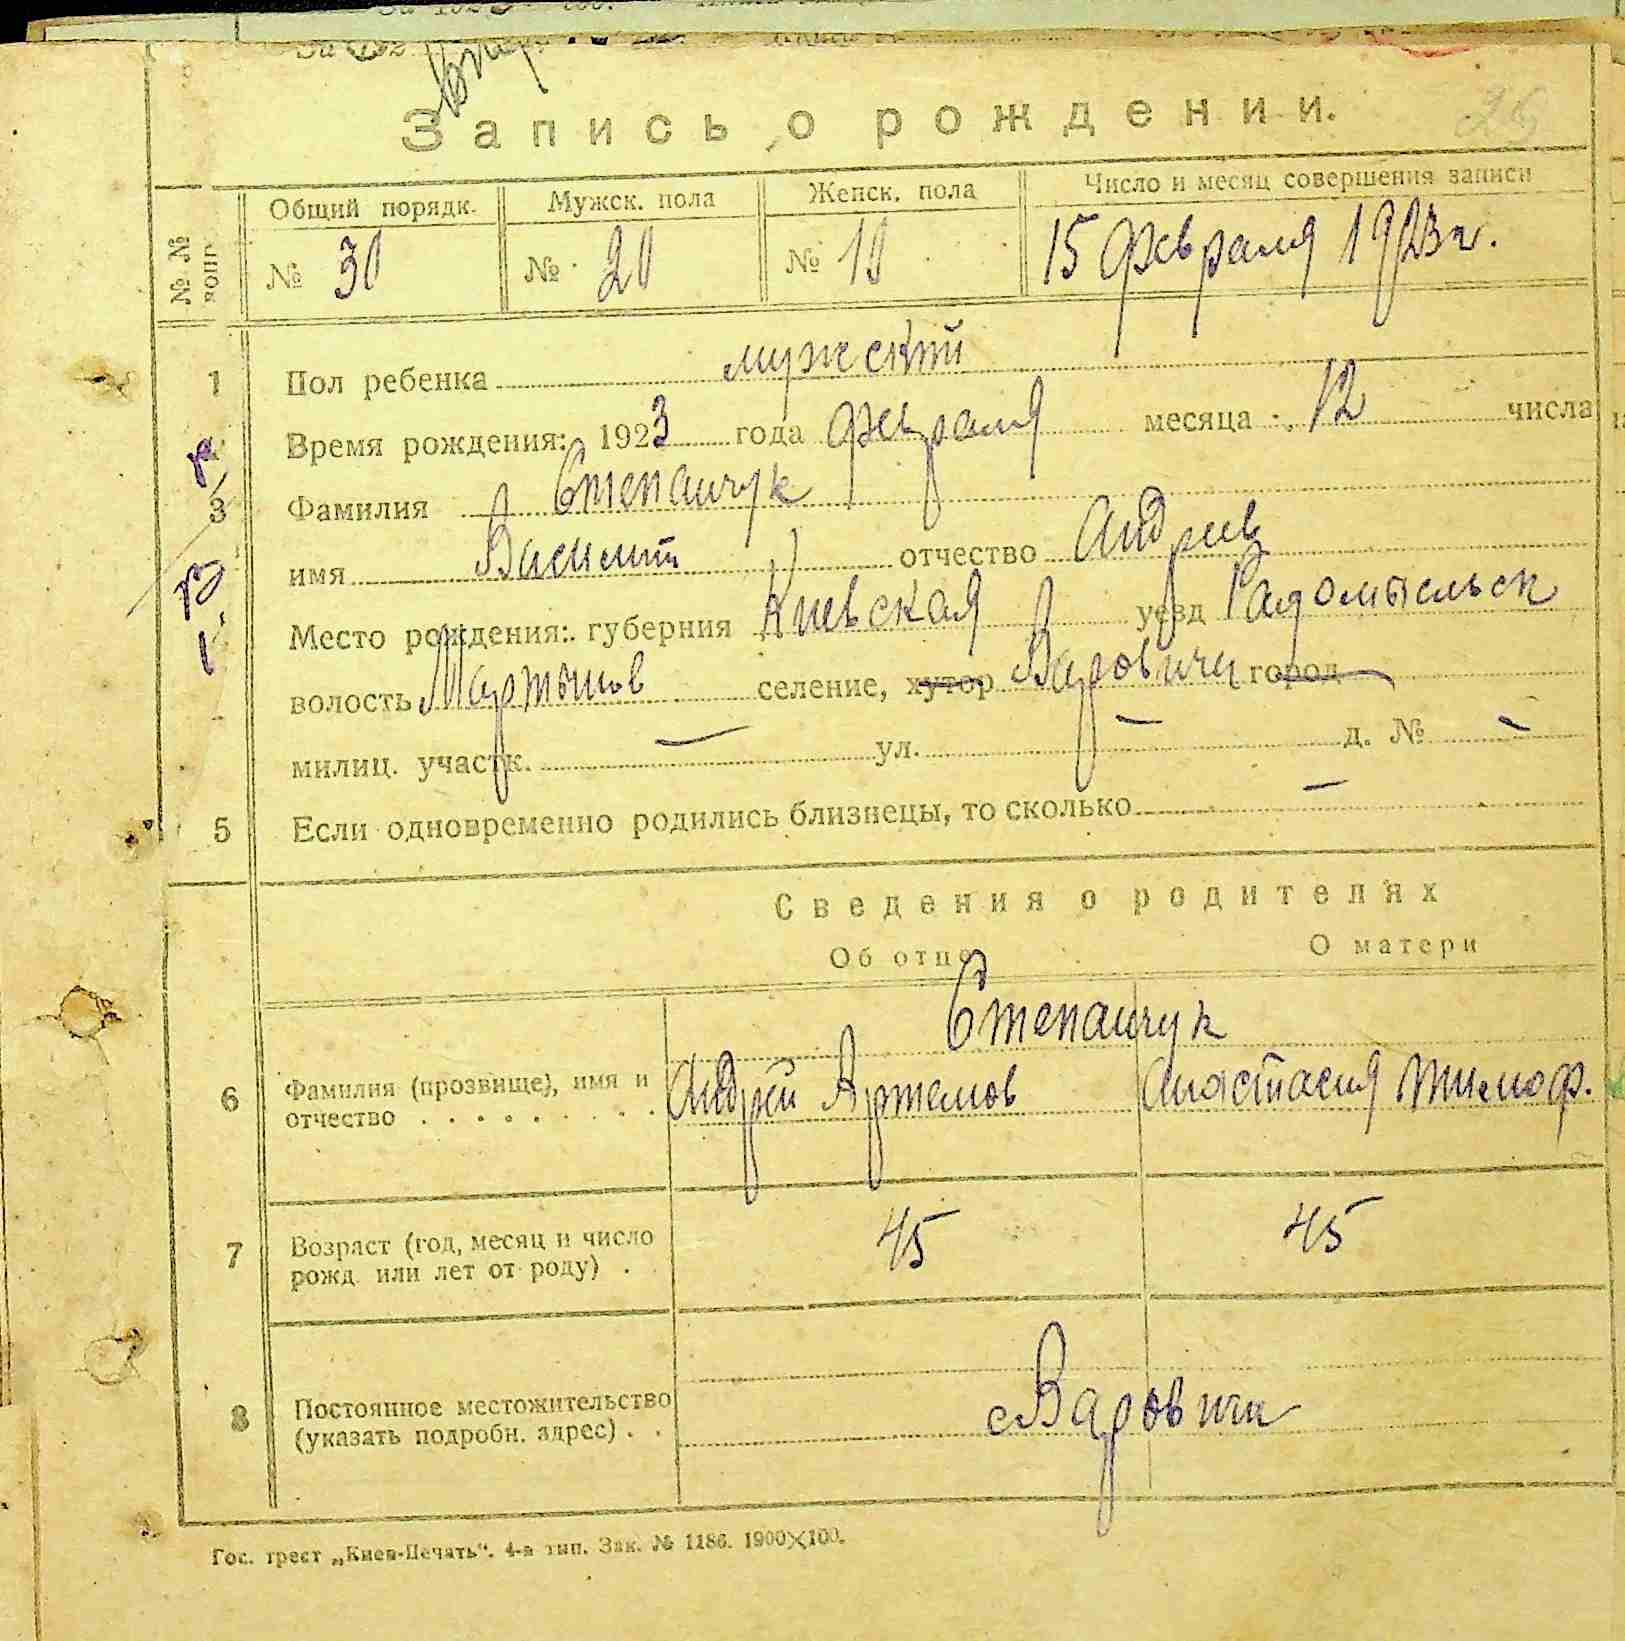 Запись о рождении.
Общий порядк. Мужск. пола Женск. пола Число и месяц совершения записи
№ 30 № 20 № 10 15 февраля 1923 г.
1 Пол ребенка мужский
Время рождения: 1923 года февраля месяца 12 числа
3 Фамилия Степанчук
имя Василий отчество Андриев
Место рождения: губерния Киевская уезд Радомысльск
волость Мартынов селение, хутор Варовичи город
милиц. участк. — ул. — д. № —
5 Если одновременно родились близнецы, то сколько —
Сведения о родителях
Об отце О матери
Степанчук
6 Фамилия (прозвище), имя и Андрей Артемов Анастасия Тимоф.
отчество
7 Возраст (год, месяц и число 45 45
рожд. или лет от роду) .
8 Постоянное местожительство с Варовичи
(указать подробн. адрес) . .
Гос. трест „Киев-Печать“. 4-я тип. Зак. № 1186. 1900×100.